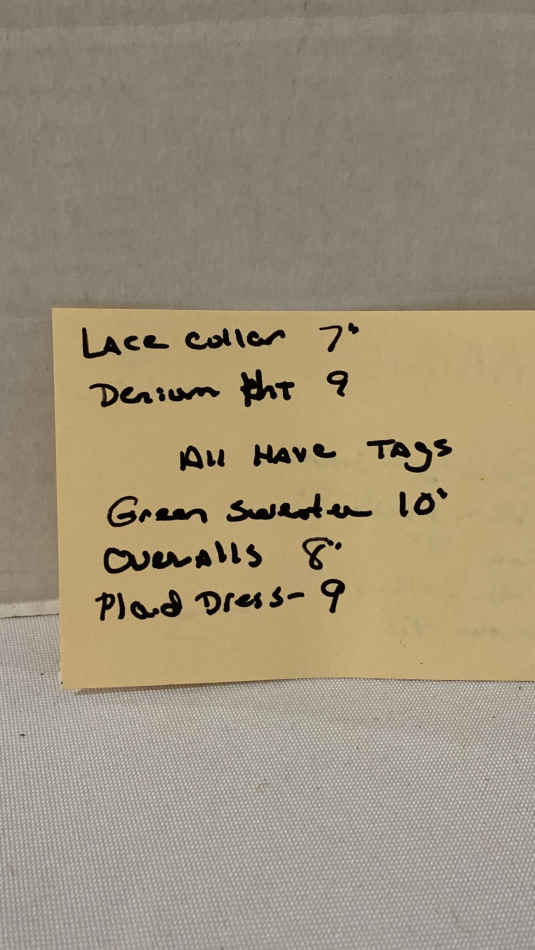 Lace Collar 7"
Denium Hat 9
All Have Tags
Green Sweater 10"
Overalls 8"
Plaid Dress - 9